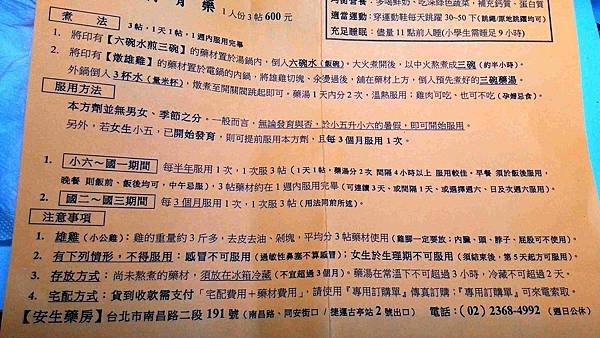 樂 1人份3帖600元
均衡營養：多喝鮮奶、吃深綠色蔬菜，補充鈣質、蛋白質
適當運動：穿運動鞋每天跳躍30~50下(跳繩/原地跳躍均可)
充足睡眠：儘量11點前入睡(小學生需睡足9小時)
煮 法 3帖，1天1帖，1週內服用完畢
1. 將印有【六碗水煎三碗】的藥材置於湯鍋內，倒入六碗水(飯碗)，大火煮開後，以中火熬煮成三碗(約半小時)。
2. 將印有【燉雄雞】的藥材置於電鍋的內鍋，將雄雞切塊、汆燙過後，舖在藥材上方，倒入預先煮好的三碗藥湯。
外鍋倒入3杯水(量米杯)，燉煮至開關關跳起即可。藥湯1天內分2次，溫熱服用；雞肉可吃、也可不吃(孕婦忌食)。
服用方法
本方劑並無男女、季節之分。一般而言，無論發育與否，於小五升小六的暑假，即可開始服用。
另外，若女生小五，已開始發育，則可提前服用本方劑，且每3個月服用1次。
1. 小六～國一期間 每半年服用1次，1次服3帖(1天1帖，藥湯分2次 間隔4小時以上 服用較佳。早餐 須於飯後服用，
晚餐 則飯前、飯後均可，中午忌服)，3帖藥材約在1週內服用完畢(可連續3天、或間隔1天、或選擇週六、日及次週六服用)。
2. 國二～國三期間 每3個月服用1次，1次服3帖(用法同前所述)。
注意事項
1. 雄雞(小公雞)：雞的重量約3斤多，去皮去油、剁塊，平均分3帖藥材使用(雞腳一定要放；內臟、頭、脖子、屁股可不使用)。
2. 有下列情形，不得服用：感冒不可服用(過敏性鼻塞不算感冒)；女生於生理期不可服用(須結束後，第5天起方可服用)。
3. 存放方式：尚未熬煮的藥材，須放在冰箱冷藏(不宜超過3個月)。藥湯在常溫下不可超過3小時，冷藏不可超過2天。
4. 宅配方式：貨到收款需支付「宅配費用＋藥材費用」，請使用『專用訂購單』傳真訂購；『專用訂購單』可來電索取。
【安生藥房】台北市南昌路二段191號(南昌路、同安街口 / 捷運古亭站2號出口) 電話：(02) 2368-4992 (週日公休)